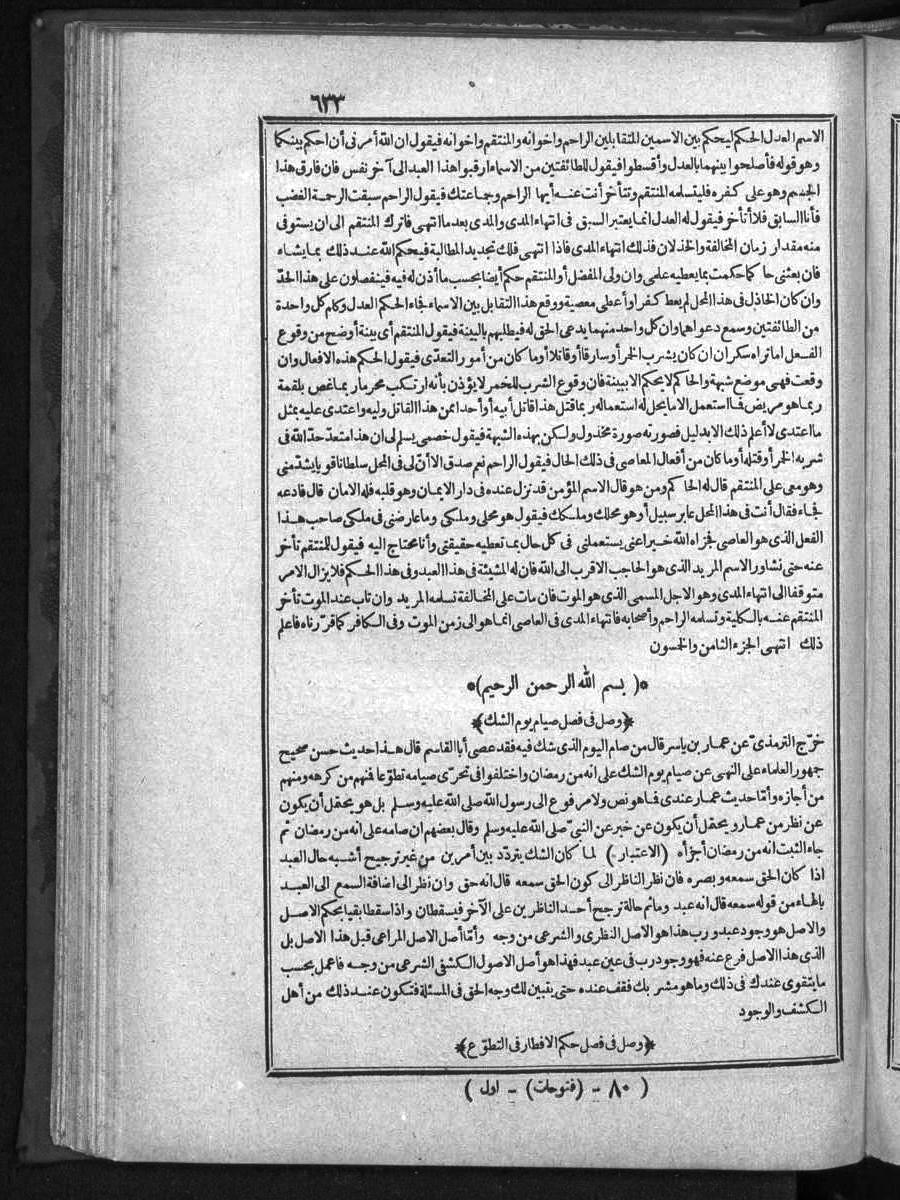 ٦٣٣
الاسم العدل الحكم ليحكم بين الاسمين المتقابلين الراحم واخوانه والمنتقم واخوانه فيقول ان الله أمرنى أن احكم بينكما
وهو قوله فأصلحوا بينهما بالعدل وأقسطوا فيقول للطائفتين من الاسماء ارقبوا هذا العبد الى آخر نفس فان فارق هذا
الجسم وهو على كفره فليتسلمه المنتقم وتتأخر أنت عنه أيها الراحم وجماعتك فيقول الراحم سبقت الرحمة الغضب
فأنا السابق فلا أتأخر فيقول له العدل انما يعتبر السبق فى انتهاء المدى والمدى بعد ما انتهى فاترك المنتقم الى ان يستوفى
منه مقدار زمان المخالفة والخذلان فذلك انتهاء المدى فاذا انتهى فلك تجديد المطالبة فيحكم الله عند ذلك بما يشاء
فان بعثنى حاكما حكمت بما يعطيه علمى وان ولى المفضل أو المنتقم حكم أيضا بحسب ما أذن له فيه فينفصلون على هذا الحدّ
وان كان الخاذل فى هذا المحل لم يعط كفرا وأعطى معصية ووقع هذا التقابل بين الاسماء فجاء الحكم العدل وكلم كل واحدة
من الطائفتين وسمع دعواهما وان كل واحد منهما يدعى الحق له فيطلبهم بالبينة فيقول المنتقم أى بينة أوضح من وقوع
الفعل اما تراه سكران ان كان يشرب الخمر أو سارقا أو قاتلا أو ما كان من أمور التعدّى فيقول الحكم هذه الافعال وان
وقعت فهى موضع شبهة والحاكم لا يحكم الا ببينة فان وقوع الشرب للخمر لا يؤذن بأنه ارتكب محرما ربما غص بلقمة
ربما هو مريض فما استعمل الا ما يحل له استعماله ربما قتل هذا قاتل أبيه أو أحدا ممن هذا القاتل وليه واعتدى عليه بمثل
ما اعتدى لا أعلم ذلك الا بدليل فصورته صورة مخذول ولكن بهذه الشبهة فيقول خصمى يسلم لى ان هذا متعدّ حدّ الله فى
شربه الخمر أو قتله أو ما كان من أفعال المعاصى فى ذلك الحال فيقول الراحم نعم صدق الا أنّ لى فى المحل سلطانا قويا يشدّ منى
وهو معى على المنتقم قال له الحاكم ومن هو قال الاسم المؤمن قد نزل عنده فى دار الايمان وهو قلبه فله الامان قال فادعه
فجاء فقال أنت فى هذا المحل عابر سبيل أو هو محلك وملكك فيقول هو محلى وملكى وما عارضنى فى ملكى صاحب هذا
الفعل الذى هو العاصى فجزاه الله خيرا عنى يستعملنى فى كل حال بما تعطيه حقيقتى وأنا محتاج اليه فيقول للمنتقم تأخر
عنه حتى نشاور الاسم المريد الذى هو الحاجب الاقرب الى الله فان له المشيئة فى هذا العبد وفى هذا الحكم فلا يزال الامر
متوقفا الى انتهاء المدى وهو الاجل المسمى الذى هو الموت فان مات على المخالفة تسلمه المريد وان تاب عند الموت تأخر
المنتقم عنه بالكلية وتسلمه الراحم وأصحابه فانتهاء المدى فى العاصى انما هو الى زمن الموت وفى الكافر كما قرّرناه فاعلم
ذلك انتهى الجزء الثامن والخمسون
*(بسم الله الرحمن الرحيم)*
﴿وصل فى فصل صيام يوم الشك﴾
خرّج الترمذىّ عن عمار بن ياسر قال من صام اليوم الذى شك فيه فقد عصى أبا القاسم قال هذا حديث حسن صحيح
جمهور العلماء على النهى عن صيام يوم الشك على انه من رمضان واختلفوا فى تحرّى صيامه تطوّعا فنهم من كرهه ومنهم
من أجازه وأمّا حديث عمار عندى فما هو نص ولا مرفوع الى رسول الله صلى الله عليه وسلم بل هو يحتمل أن يكون
عن نظر من عمار ويحتمل أن يكون عن خبر عن النبىّ صلى الله عليه وسلم وقال بعضهم ان صامه على انه من رمضان ثم
جاء الثبت انه من رمضان أجزأه (الاعتبار) لما كان الشك يتردّد بين أمرين من غير ترجيح أشبه حال العبد
اذا كان الحق سمعه وبصره فان نظر الناظر الى كون الحق سمعه قال انه حق وان نظر الى اضافة السمع الى العبد
بالهاء من قوله سمعه قال انه عبد وما ثم حالة ترجح أحد الناظرين على الآخر فيسقطان واذا سقطا بقيا بحكم الاصل
والاصل هو وجود عبد ورب هذا هو الاصل النظرى والشرعى من وجه وأمّا أصل الاصل المراعى قبل هذا الاصل بل
الذى هذا الاصل فرع عنه فهو وجود رب فى عين عبد فهذا هو أصل الاصول الكشفى الشرعى من وجه فاعمل بحسب
ما يتقوى عندك فى ذلك وما هو مشربك فقف عنده حتى يتبين لك وجه الحق فى المسئلة فتكون عند ذلك من أهل
الكشف والوجود
﴿وصل فى فصل حكم الافطار فى التطوّع﴾
( ٨٠ - (فتوحات) - اول )